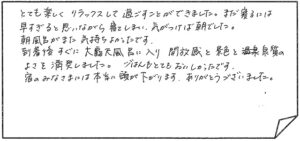 とても楽しくリラックスして過ごすことができました。まだ寝るには
早すぎると思いながら 横としまい、気がつけば朝でした。
朝風呂がまた 気持ちよかったです。
到着後すぐに 大露天風呂に入り 開放感と景色と温泉良質の
よさも 満喫しました。ごはんもとてもおいしかったです。
宿のみなさまには本当に頭が下がります。ありがとうございました。